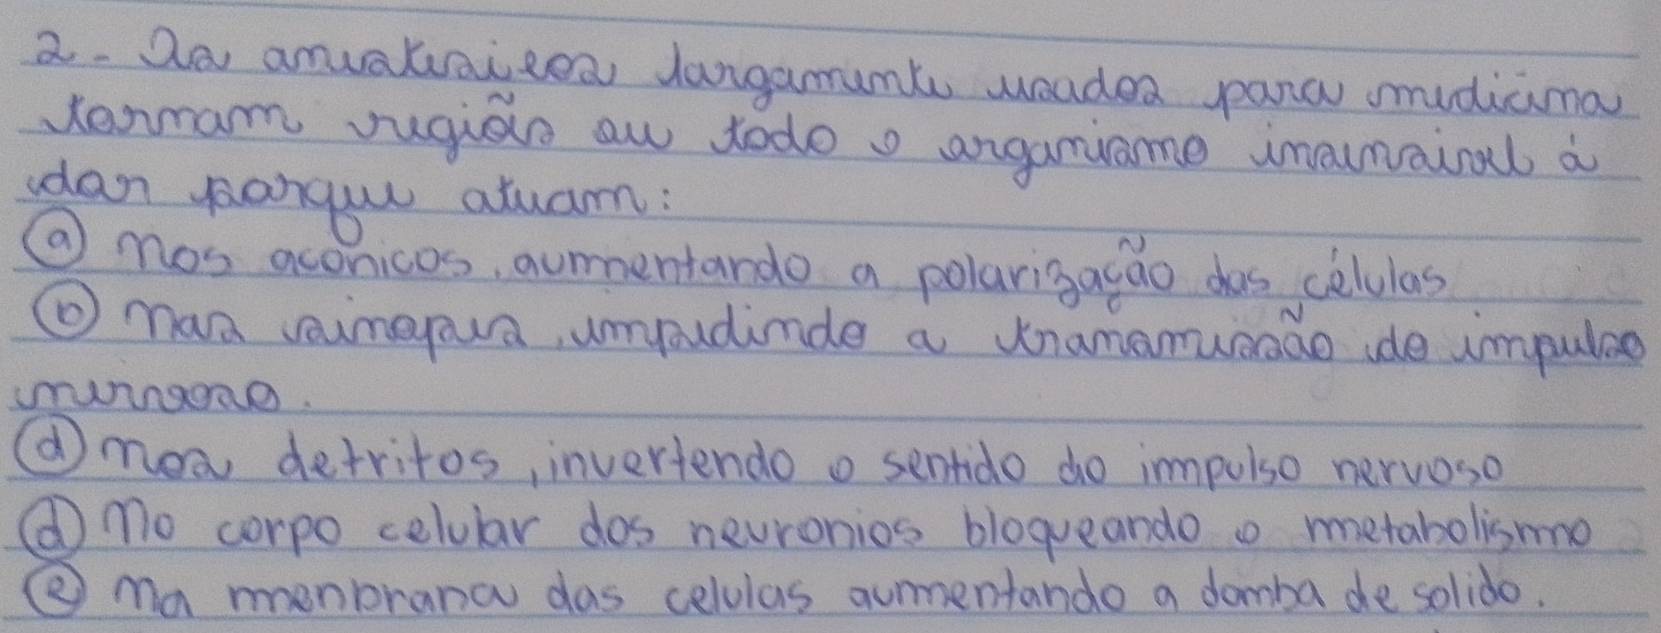 2- Os anestésicos largamente usados para medicina
tornam região ou todo o organismo insensível à
dor porque atuam:
ⓐ nos acônicos, aumentando a polarização das células
ⓑ nas sinapses, impedindo a transmissão do impulso
nervoso.
ⓓ nos detritos, invertendo o sentido do impulso nervoso
ⓓ no corpo celular dos neuronios bloqueando o metabolismo
ⓔ na menbrana das celulas aumentando a bomba de solido.